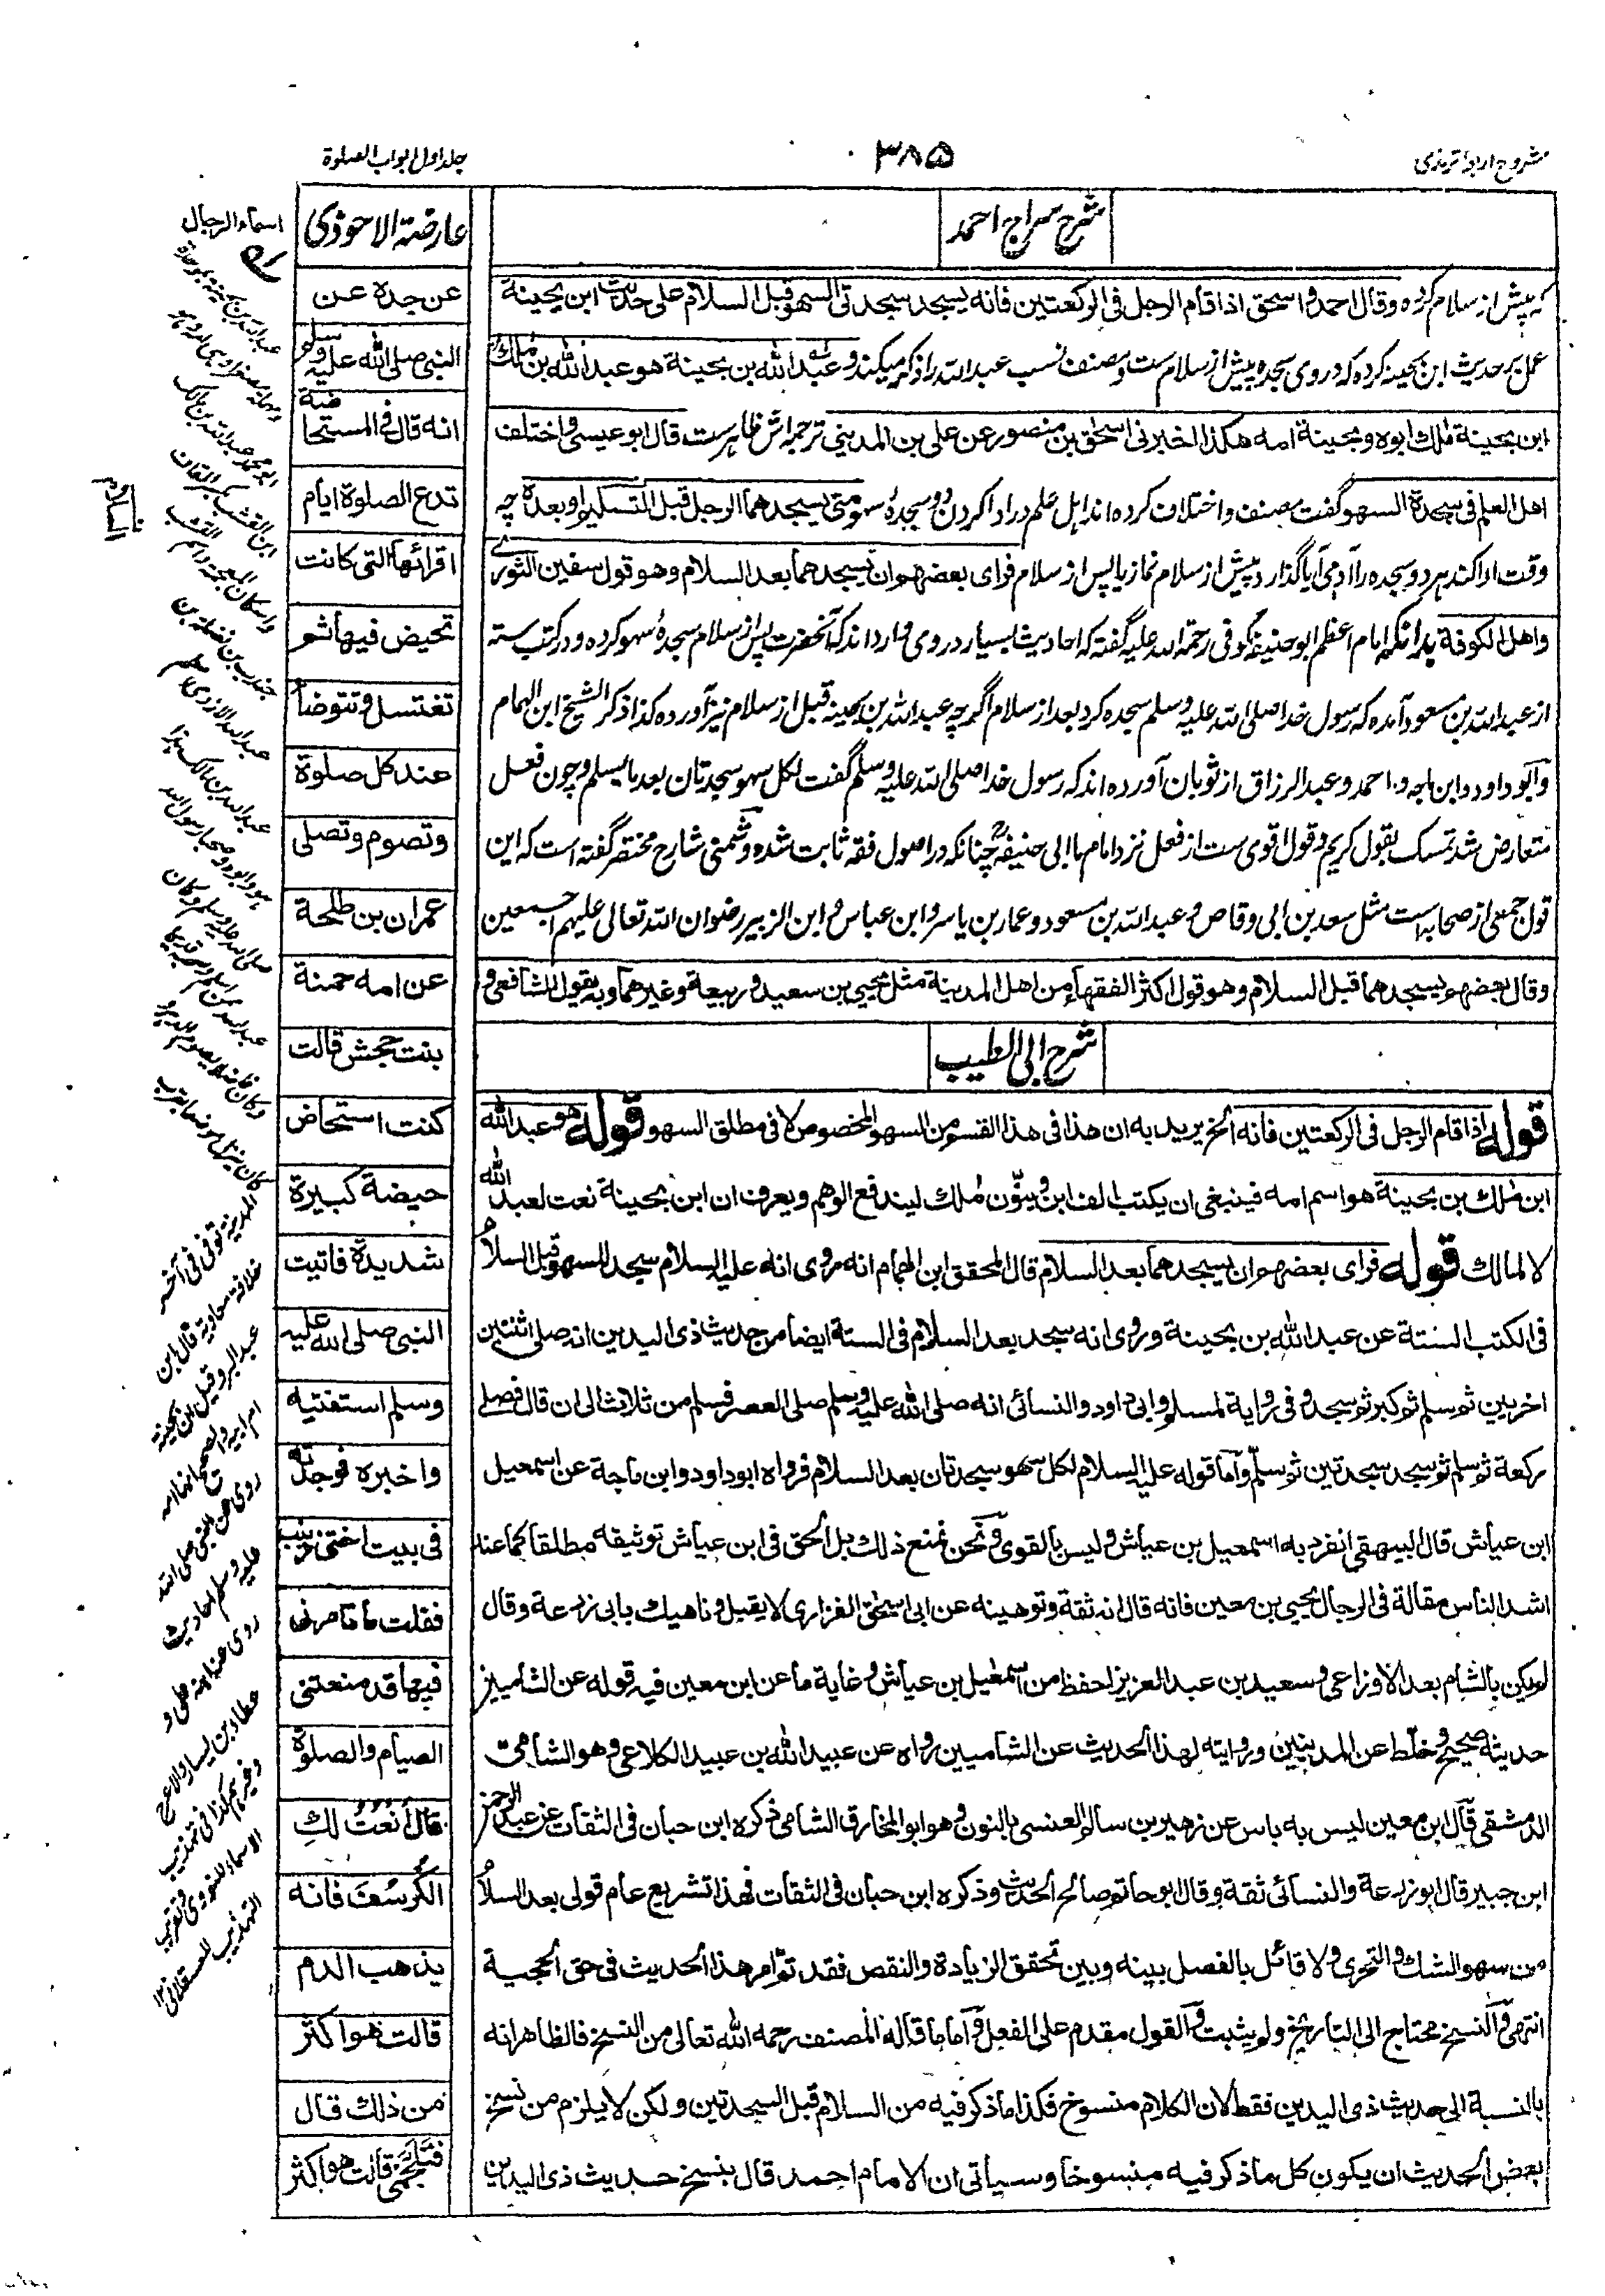 مشروح اربعه ترمذی
۳۸۵
جلد اول ابواب الصلوة
شرح سراج احمد
که پیش از سلام کرده وقال احمد واسحق اذا قام الرجل فی الرکعتین فانه یسجد سجدتی السهو قبل السلام علی حدیث ابن بحینة
عمل بر حدیث ابن بحینه کرده که در وی سجده پیش از سلام ست و مصنف نسب عبد الله را ذکر میکند و عبد الله بن بحینة هو عبد الله بن ملك
ابن بحینة ملك ابوه وبحینة امه هکذا اخبرنی اسحق بن منصور عن علی بن المدینی ترجمه اش ظاهر ست قال ابو عیسی واختلف
اهل العلم فی سجدة السهو گفت مصنف و اختلاف کرده اند اهل علم در ادا کردن دو سجدۀ سهو متی یسجدهما الرجل قبل التسلیم او بعده چه
وقت ادا کند هر دو سجده را آدمی آیا گذارد پیش از سلام نماز یا پس از سلام فرای بعضهم ان یسجدهما بعد السلام وهو قول سفین الثوری
واهل الکوفة بدانکه امام اعظم ابو حنیفه کوفی رحمة الله علیه گفته که احادیث بسیار در وی وارد اند که آنحضرت پس از سلام سجدۀ سهو کرده و در کتب سته
از عبد الله بن مسعود آمده که رسول خدا صلی الله علیه وسلم سجده کرد بعد از سلام اگرچه عبد الله بن بحینه قبل از سلام نیز آورده کذا ذکر الشیخ ابن الهمام
و ابو داود و ابن ماجه و احمد و عبد الرزاق از ثوبان آورده اند که رسول خدا صلی الله علیه وسلم گفت لکل سهو سجدتان بعد ما یسلم و چون فعل
متعارض شد تمسک بقول کریم و قول اقوی ست از فعل نزد امام ما ابی حنیفه چنانکه در اصول فقه ثابت شده و شمنی شارح مختصر گفته است که این
قول جمعی از صحابه است مثل سعد بن ابی وقاص و عبد الله بن مسعود و عمار بن یاسر و ابن عباس و ابن الزبیر رضوان الله تعالی علیهم اجمعین
وقال بعضهم یسجدهما قبل السلام وهو قول اکثر الفقهاء من اهل المدینة مثل یحیی بن سعید وربیعة وغیرهما وبه یقول الشافعی و
شرح ابی الطیب
قوله اذا قام الرجل فی الرکعتین فانه الخ یرید به ان هذا فی هذا القسم من السهو المخصوص لا فی مطلق السهو قوله هو عبد الله
ابن ملك بن بحینة هو اسم امه فینبغی ان یکتب الف ابن وینون ملك لیندفع الوهم ویعرف ان ابن بحینة نعت لعبد الله
لا لمالك قوله فرای بعضهم ان یسجدهما بعد السلام قال المحقق ابن الهمام انه روی انه علیه السلام سجد للسهو قبل السلام
فی الکتب الستة عن عبد الله بن بحینة وروی انه سجد بعد السلام فی الستة ایضا من حدیث ذی الیدین انه صلی اثنتین
اخریین ثم سلم ثم کبر ثم سجد وفی روایة لمسلم وابی داود والنسائی انه صلی الله علیه وسلم صلی العصر فسلم من ثلاث الی ان قال فصلی
رکعة ثم سلم ثم سجد سجدتین ثم سلم واما قوله علیه السلام لکل سهو سجدتان بعد السلام فرواه ابو داود وابن ماجة عن اسمعیل
ابن عیاش قال البیهقی انفرد به اسمعیل بن عیاش ولیس بالقوی ونحن نمنع ذلك بل الحق فی ابن عیاش توثیقه مطلقا کما عند
اشد الناس مقالة فی الرجال یحیی بن معین فانه قال انه ثقة وتوهینه عن ابی اسحق الفزاری لا یقبل وناهیك بابی زرعة وقال
لم یکن بالشام بعد الاوزاعی وسعید بن عبد العزیز احفظ من اسمعیل بن عیاش وغایة ما عن ابن معین فیه قوله عن الشامیین
حدیثه صحیح وخلط عن المدنیین وروایته لهذا الحدیث عن الشامیین رواه عن عبید الله بن عبید الکلاعی وهو الشامی
الدمشقی قال ابن معین لیس به باس عن زهیر بن سالم العنسی بالنون وهو ابو المخارق الشامی ذکره ابن حبان فی الثقات عن عبد الرحمن
ابن جبیر قال ابو زرعة والنسائی ثقة وقال ابو حاتم صالح الحدیث وذکره ابن حبان فی الثقات فهذا تشریع عام قولی بعد السلام
من سهو الشك والتحری ولا قائل بالفصل بینه وبین تحقق الزیادة والنقص فقد تم امر هذا الحدیث فی حق الحجیة
انتهی والنسخ محتاج الی التاریخ ولم یثبت والقول مقدم علی الفعل واما ما قاله المصنف رحمه الله تعالی من النسخ فالظاهر انه
بالنسبة الی حدیث ذی الیدین فقط لان الکلام منسوخ فکذا ما ذکر فیه من السلام قبل السجدتین ولکن لا یلزم من نسخ
بعض الحدیث ان یکون کل ما ذکر فیه منسوخا وسیاتی ان الامام احمد قال بنسخ حدیث ذی الیدین
عارضة الاحوذی
عن جده عن
النبی صلی الله علیه وسلم
انه قال فی المستحاضة
تدع الصلوة ایام
اقرائها التی کانت
تحیض فیها ثم
تغتسل وتتوضأ
عند کل صلوة
وتصوم وتصلی
عمران بن طلحة
عن امه حمنة
بنت جحش قالت
کنت استحاض
حیضة کبیرة
شدیدة فاتیت
النبی صلی الله علیه
وسلم استفتیه
واخبره فوجدته
فی بیت اختی زینب
فقلت ما تامرنی
فیها قد منعتنی
الصیام والصلوة
قال أنعت لكِ
الکُرسُفَ فانه
یذهب الدم
قالت هو اکثر
من ذلك قال
فتلجمی قالت هو اکثر
اسماء الرجال
عبد الله بن مالك هذا
المدینة توفی فی آخر
خلافة معاویة قال ابن
عبد البر وقیل ان بحینة
ام ابیه والصحیح انها امه
روی عن النبی صلی الله
علیه وسلم احادیث
روی عنه ابنه علی و
عطاء بن یسار والاعرج
وغیرهم هکذا فی تهذیب
الاسماء للنووی وتقریب
التهذیب للعسقلانی ۱۲